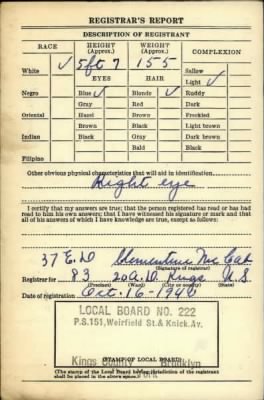 REGISTRAR'S REPORT
DESCRIPTION OF REGISTRANT
RACE HEIGHT (Approx.) WEIGHT (Approx.) COMPLEXION
White ✓ 5ft 7 155 Sallow
EYES HAIR Light ✓
Negro Blue ✓ Blonde ✓ Ruddy
Gray Red Dark
Oriental Hazel Brown Freckled
Brown Black Light brown
Indian Black Gray Dark brown
Bald Black
Filipino
Other obvious physical characteristics that will aid in identification
Right eye
I certify that my answers are true; that the person registered has read or has had
read to him his own answers; that I have witnessed his signature or mark and that
all of his answers of which I have knowledge are true, except as follows:
37 E.D Clementine
(Signature of registrar)
Registrar for 83 20 A.D. Kings N.Y.
(Precinct) (Ward) (City or county) (State)
Date of registration Oct. 16-1940
LOCAL BOARD NO. 222
P.S.151, Weirfield St.& Knick.Av.
Kings County Brooklyn
(STAMP OF LOCAL BOARD)
(The stamp of the Local Board having jurisdiction of the registrant
shall be placed in the above space.)